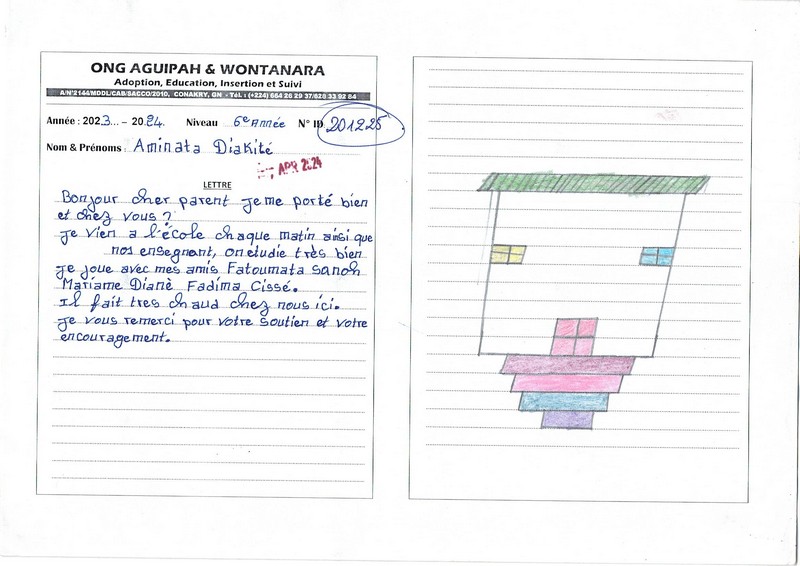 ONG AGUIPAH & WONTANARA
Adoption, Education, Insertion et Suivi
A/N°2144/MDDL/CAB/SACCO/2010, CONAKRY, GN - Tél : (+224) 664 26 29 37/628 33 92 84
Année : 2023... - 2024. Niveau 6e Année N° ID 201225
Nom & Prénoms : Aminata Diakité
APR 2024
LETTRE
Bonjour cher parent je me porté bien
et chez vous ?
je vien a l'école chaque matin ainsi que
nos ensegnant, on etudie très bien
je joue avec mes amis Fatoumata Sanoh
Mariame Dianè Fadima Cissé.
Il fait tres chaud chez nous ici.
je vous remerci pour votre soutien et votre
encouragement.